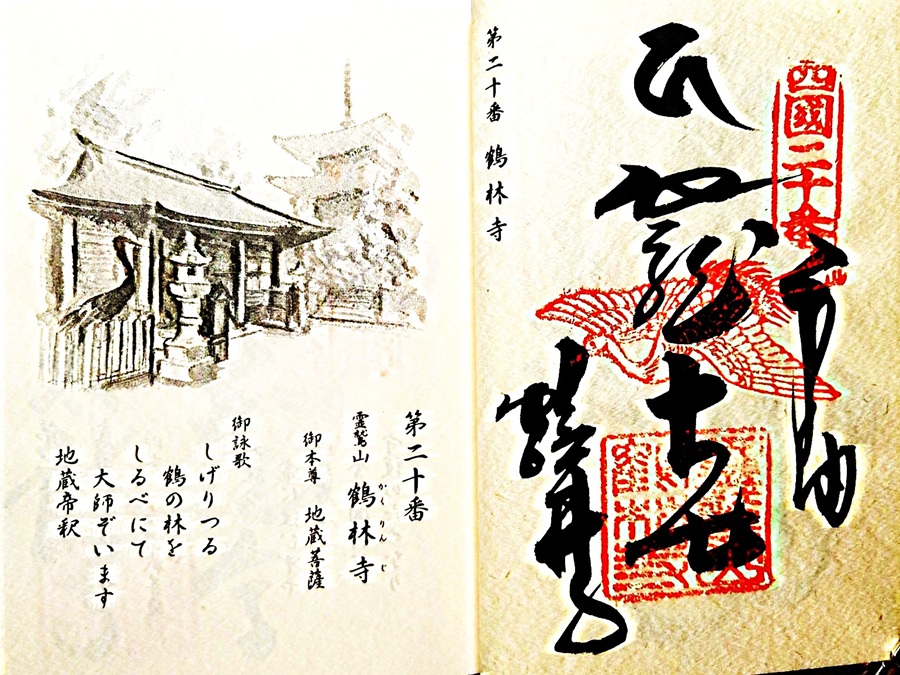 四國二十番
奉納
鶴林寺
第二十番 鶴林寺
第二十番
霊鷲山 鶴林寺
かくりんじ
御本尊 地蔵菩薩
御詠歌
しげりつる
鶴の林を
しるべにて
大師ぞいます
地蔵帝釈